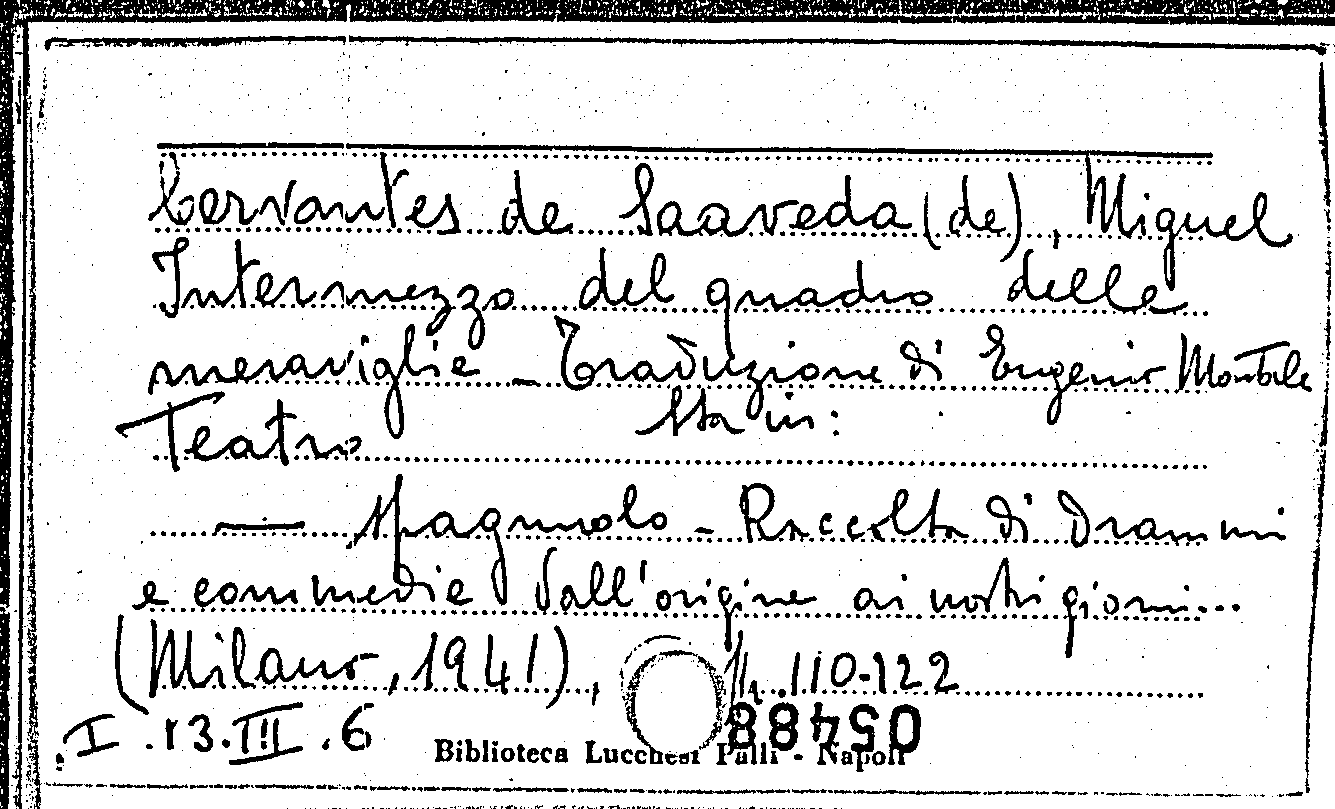 Cervantes de Saaveda (de), Miguel
Intermezzo del quadro delle
meraviglie - Traduzione di Eugenio Montale
Sta in:
Teatro
— spagnuolo - Raccolta di Drammi
e commedie dall'origine ai nostri giorni...
(Milano, 1941), pp. 110-122
I.13.III.6
05488
Biblioteca Lucchesi Palli - Napoli